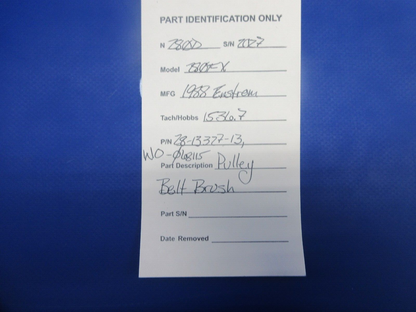 PART IDENTIFICATION ONLY
N 280SD S/N 2027
Model 280FX
MFG 1988 Enstrom
Tach/Hobbs 1536.7
P/N 28-13327-13,
WO-
Part Description Pulley
Belt Brush
Part S/N
Date Removed